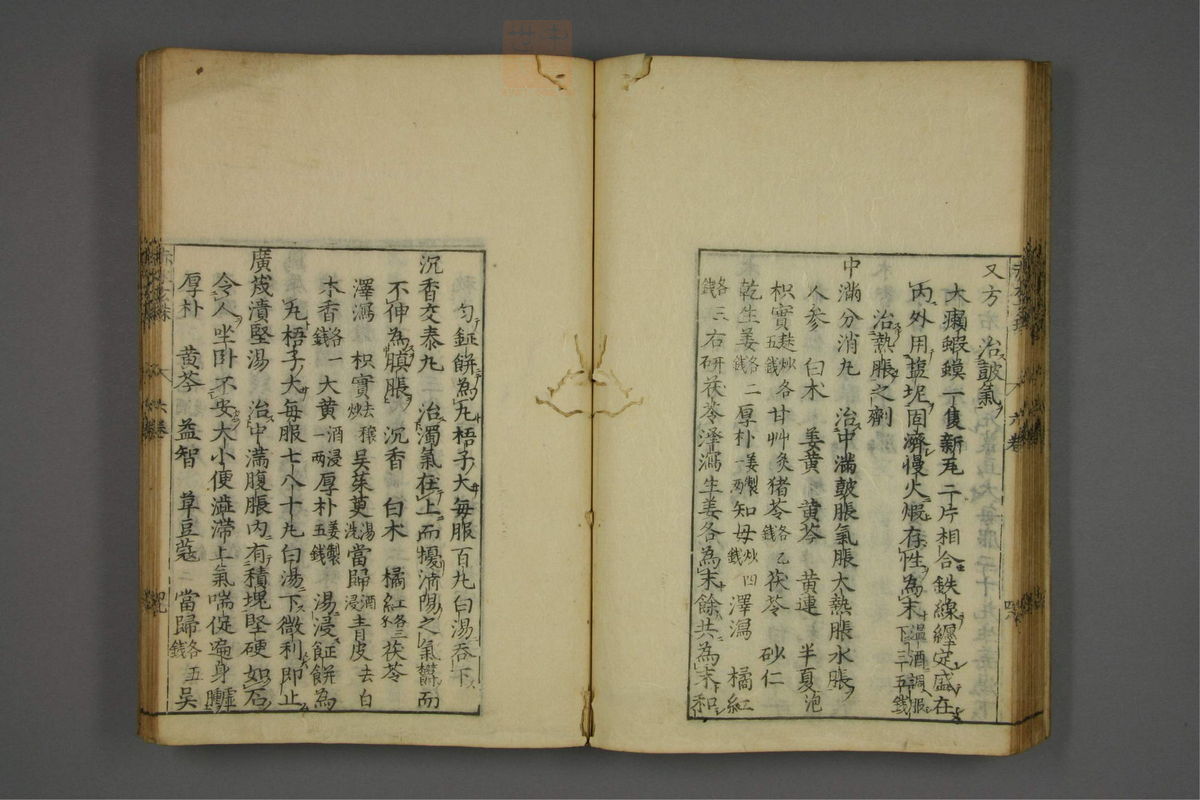 又方　治皷氣
大癩蝦蟆一隻新瓦二片相合鉄線纒定盛在
丙外用塩坭固濟慢火煆存性為末温酒調服下三五錢
治熱脹之劑
中滿分消丸　治中滿皷脹氣脹大熱脹水脹
人参　白朮　姜黄　黄芩　黄連　半夏泡
枳實麸炒各五錢甘艸灸猪苓各乙錢茯苓　砂仁
乾生姜各二錢厚朴姜製一兩知母炒四錢澤瀉　橘紅
各三錢右研茯苓澤瀉生姜各為末餘共為末和
匀鉦餅為丸梧子大毎服百丸白湯吞下
沉香交泰丸　治濁氣在上而擾清陽之氣欝而
不伸為䐜脹　沉香　白朮　橘紅各三錢茯苓
澤瀉　枳實去穣炒吳茱萸湯洗當歸酒浸青皮去白
木香各一錢大黄酒浸一兩厚朴姜製五錢湯浸鉦餅為
丸梧子大毎服七八十丸白湯下微利即止
廣茂潰堅湯　治中滿腹脹内有積塊堅硬如石
令人坐卧不安大小便澁滞上氣喘促遍身䐯
厚朴　黄芩　益智　草豆蔻　當歸各五錢吳
六卷